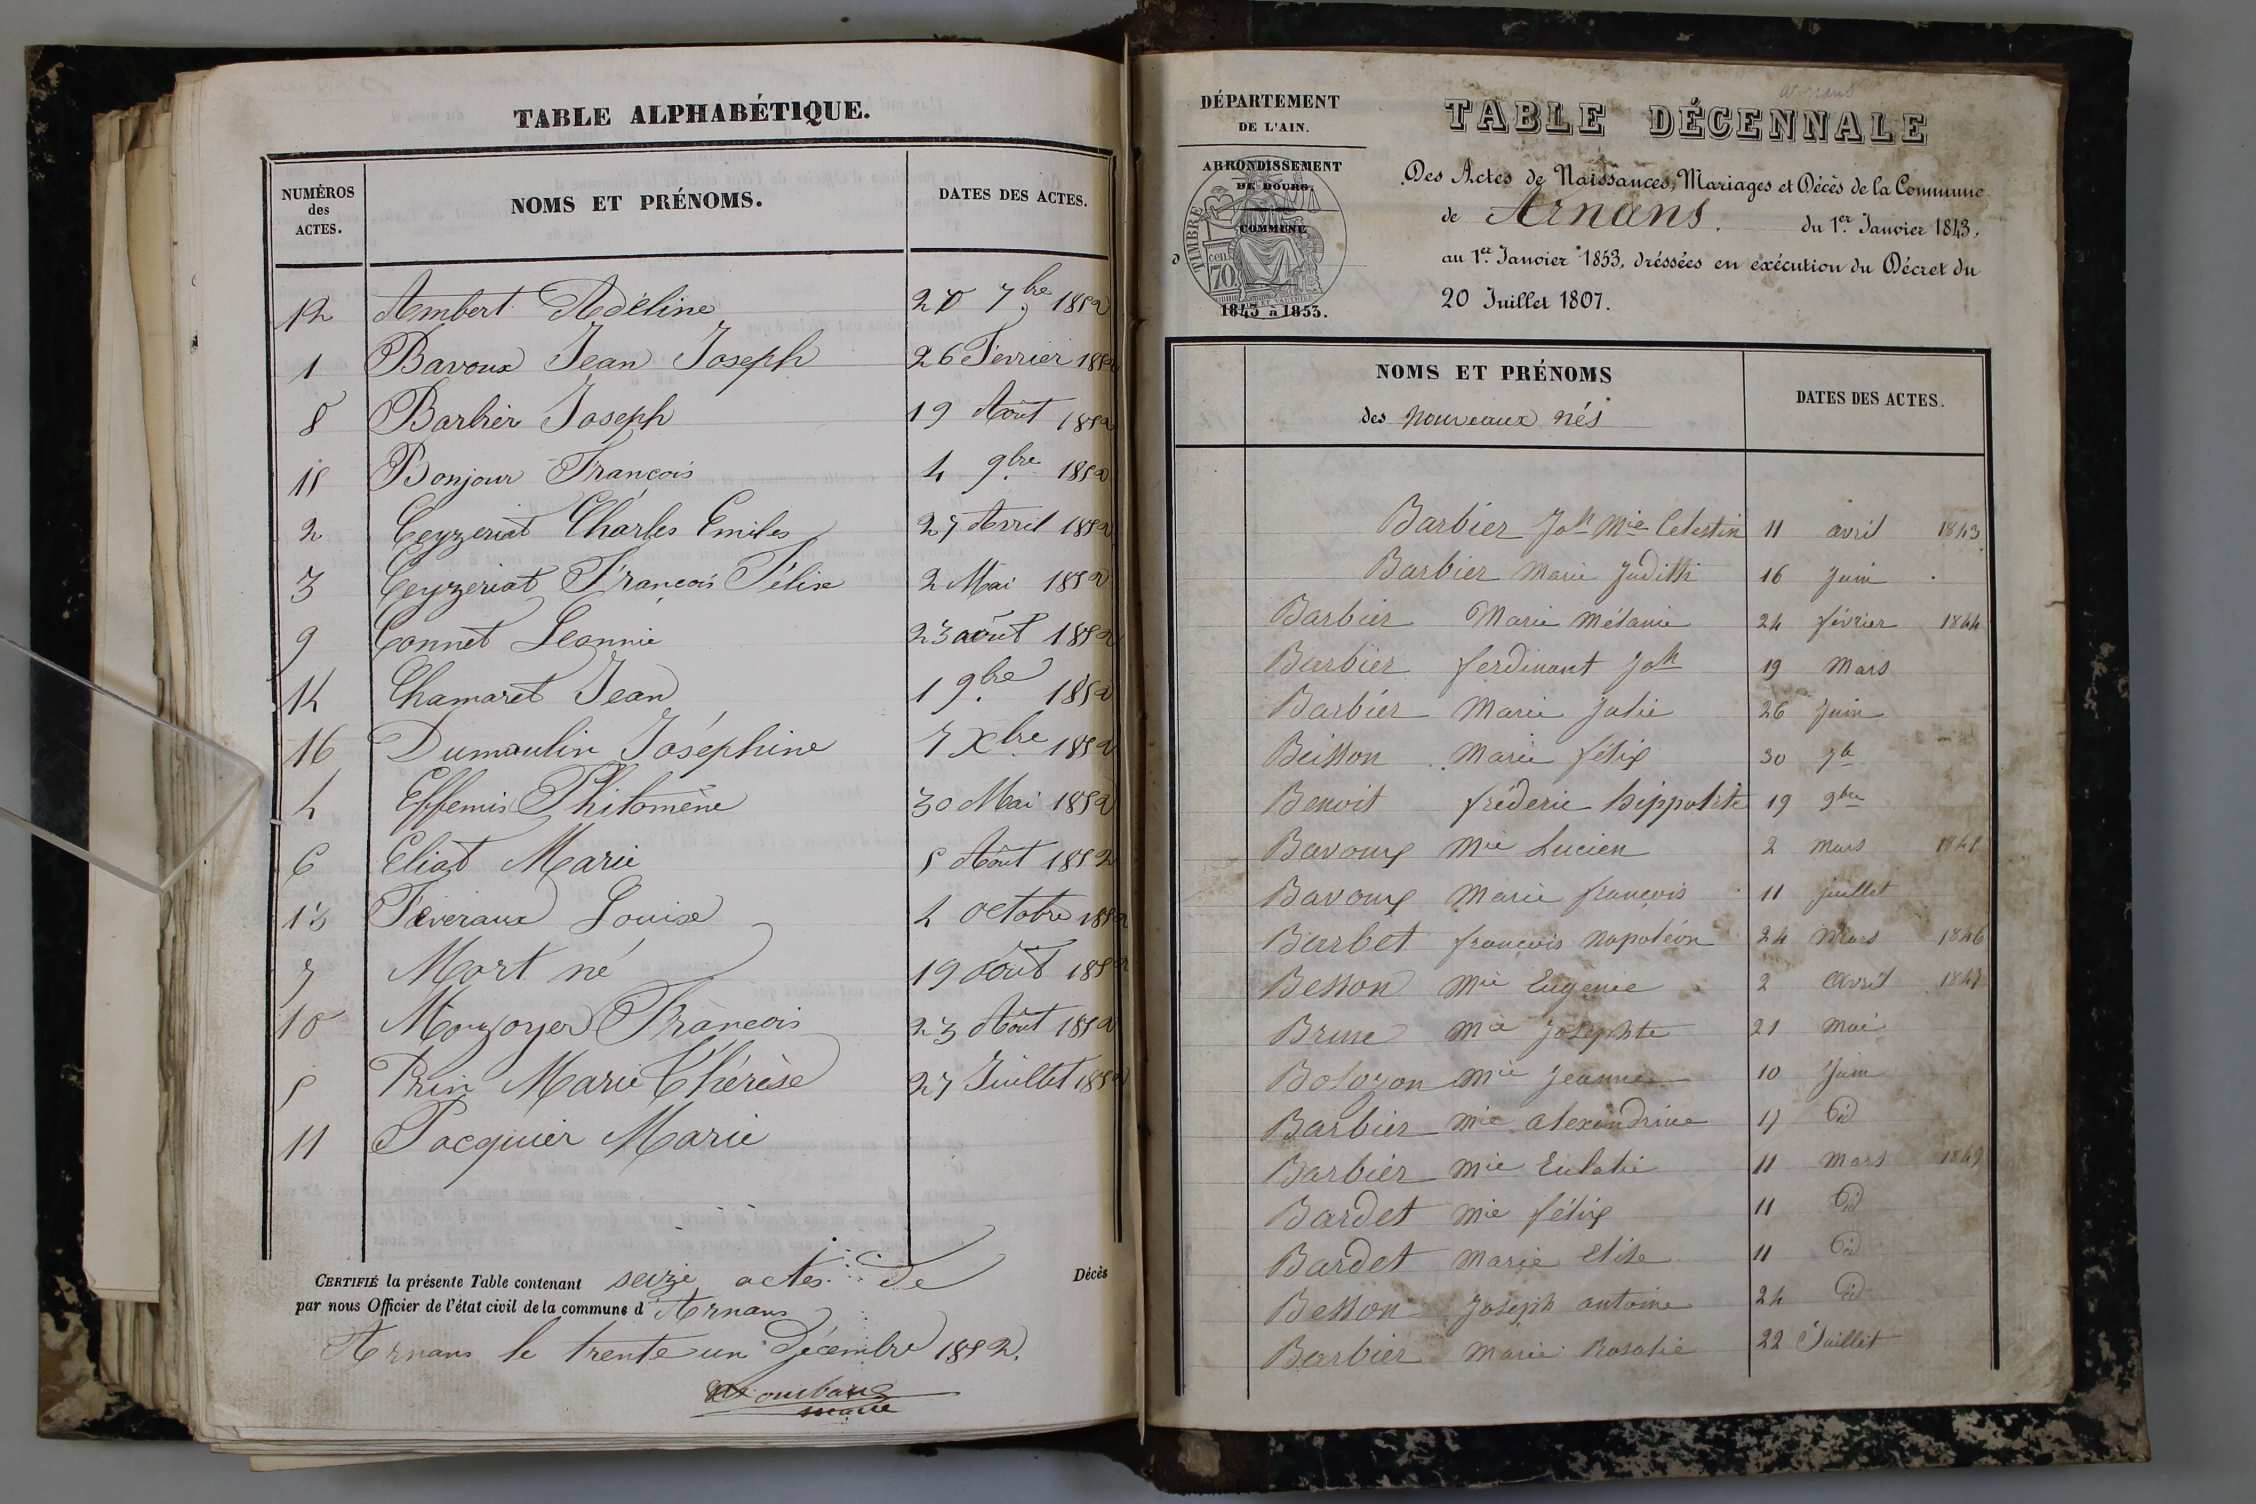 TABLE ALPHABÉTIQUE.
NUMÉROS
des
ACTES.
NOMS ET PRÉNOMS.
DATES DES ACTES.
12 Ambert Adéline 20 7bre 1852
1 Bavoux Jean Joseph 26 Fevrier 1852
8 Barbier Joseph 19 Août 1852
15 Bonjour François 4 9bre 1852
2 Ceyzeriat Charles Emiles 27 Avril 1852
3 Ceyzeriat François Félix 2 Mai 1852
9 Connet Leonnie 23 août 1852
14 Chamaret Jean 1 9bre 1852
16 Dumoulin Joséphine 7 Xbre 1852
4 Effemis Philomène 30 Mai 1852
6 Eliat Marie 5 Août 1852
13 Faveraux Louise 4 octobre 1852
7 Mort né 19 août 1852
10 Mouzoyer François 23 Août 1852
5 Prin Marie Thérèse 27 Juillet 1852
11 Pacquier Marie
CERTIFIÉ la présente Table contenant seize actes de Décès
par nous Officier de l'état civil de la commune d'Arnans
Arnans le trente un Décembre 1852.
maire
arnans
DÉPARTEMENT
DE L'AIN.
ARRONDISSEMENT
DE BOURG.
COMMUNE
d
TIMBRE
70 cen.
1843 à 1853.
TABLE DÉCENNALE
Des Actes de Naissances, Mariages et Décès de la Commune
de Arnans. du 1er Janvier 1843,
au 1er Janvier 1853, dréssées en exécution du Décret du
20 Juillet 1807.
NOMS ET PRÉNOMS
des nouveaux nés
DATES DES ACTES.
Barbier Joh Mie Celestin 11 avril 1843
Barbier Marie Judith 16 Juin
Barbier Marie Mélanie 24 février 1844
Barbier ferdinant Joh 19 Mars
Barbier Marie Julie 26 Juin
Beisson Marie félix 30 7b
Benoit fréderic hippolite 19 9bre
Bavoux Mie Lucien 2 Mars 1845
Bavoux Marie françois 11 juillet
Barbet françois Napoléon 24 Mars 1846
Besson Mie Eugenie 2 Avril 1847
Brune Mie Josephte 21 Mai
Bolozon Mie Jeanne 10 Juin
Barbier Mie alexandrine 17 Did
Barbier Mie Eulalie 11 Mars 1849
Bardet Mie félix 11 Did
Bardet Marie Elise 11 Did
Besson Joseph antoine 24 Did
Barbier Marie Rosalie 22 Juillet